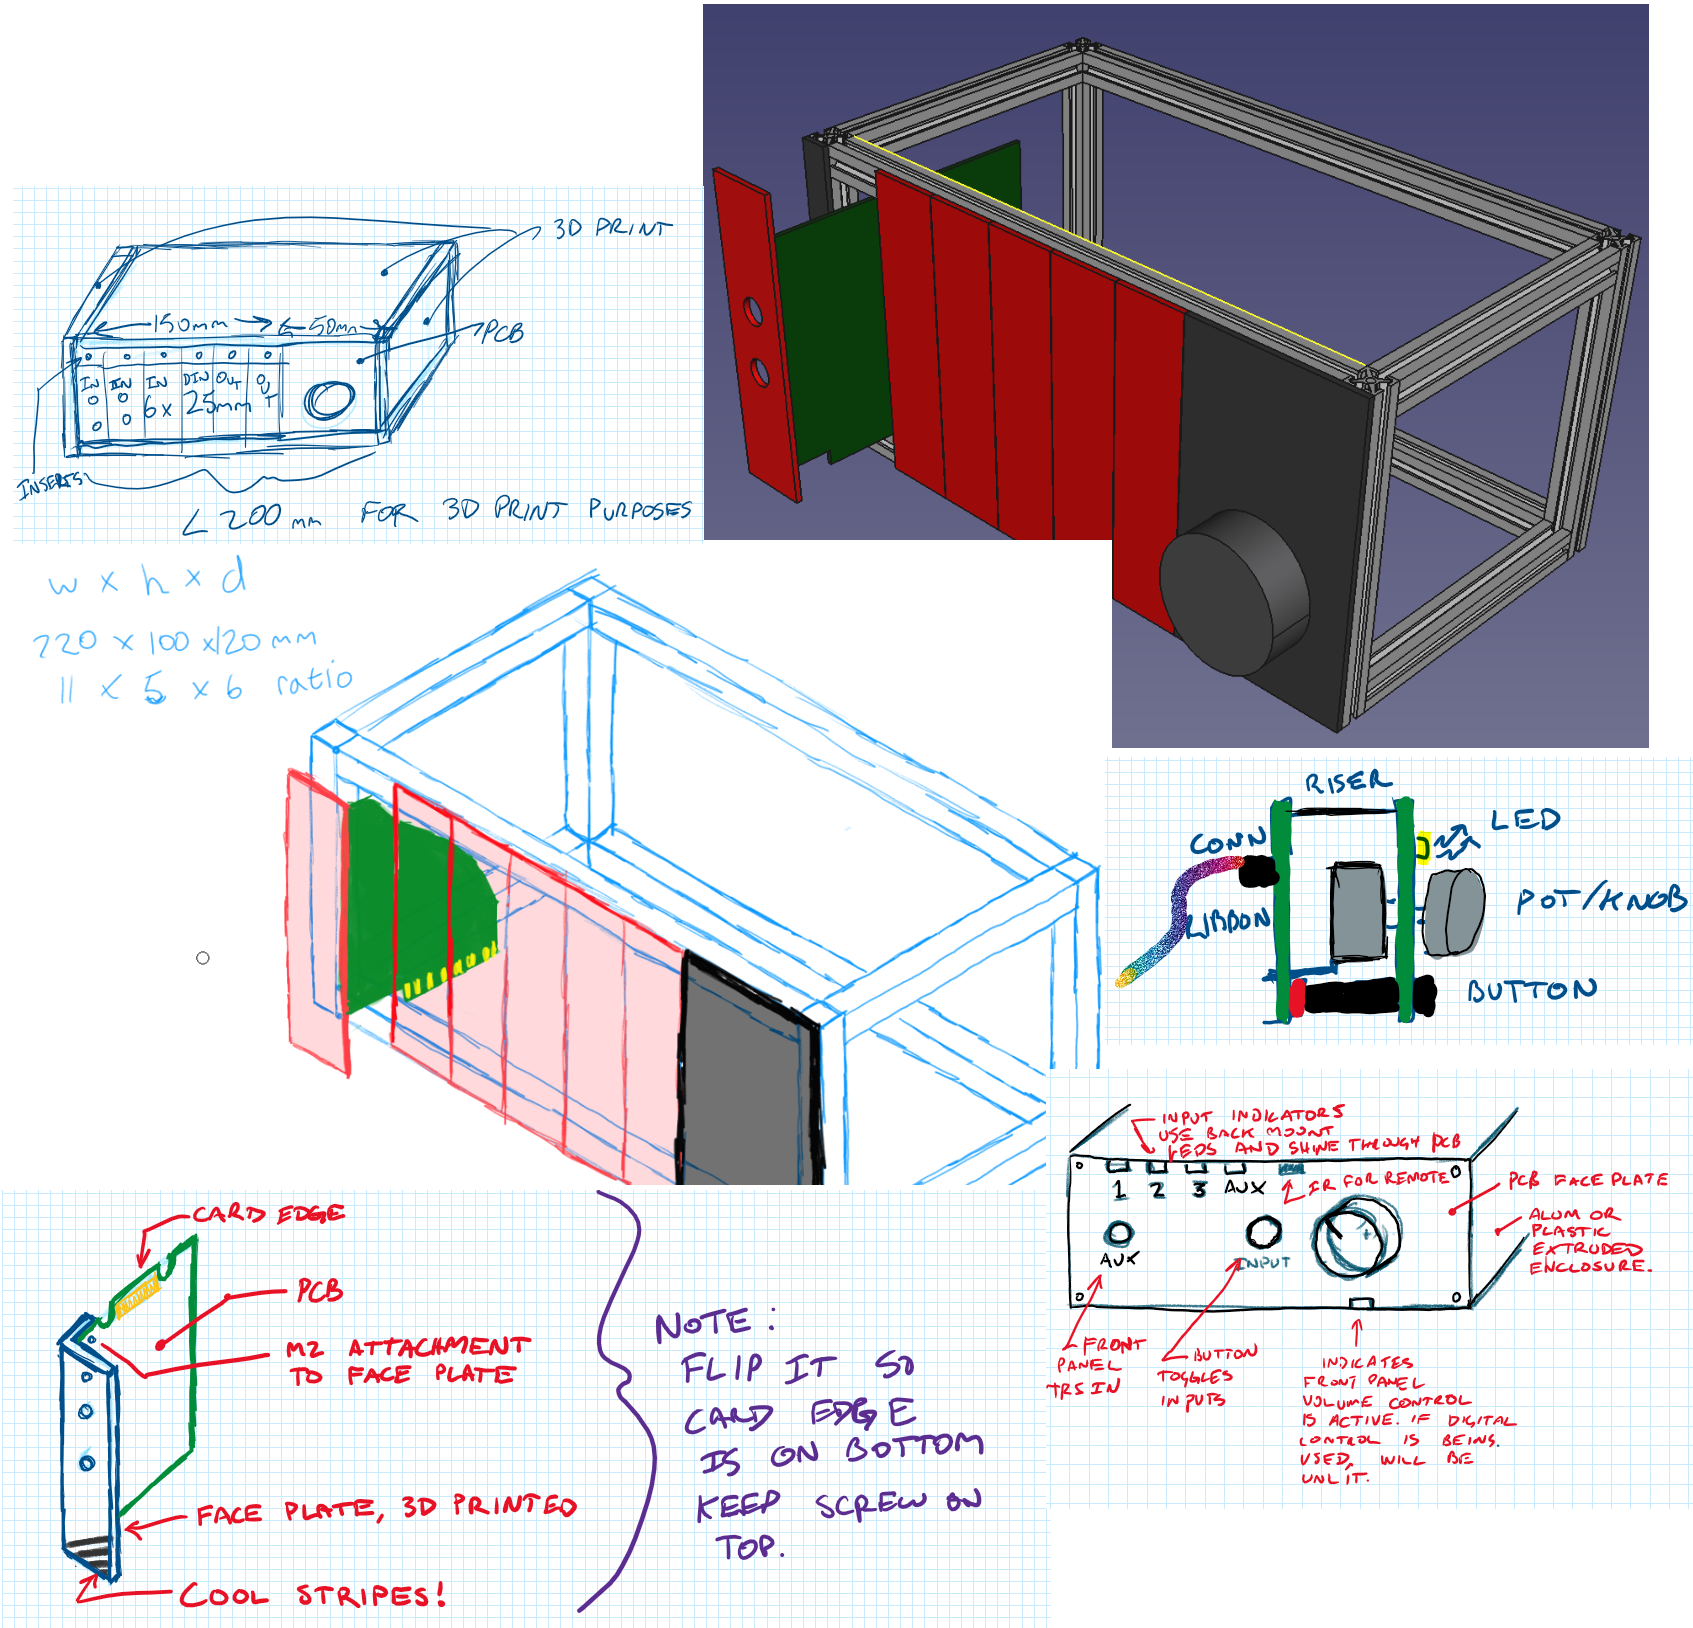 3D PRINT
150mm
50mm
PCB
IN
IN
IN
DIN
OUT
OUT
6x 25mm
INSERTS
< 200 mm FOR 3D PRINT PURPOSES
w x h x d
220 x 100 x 120 mm
11 x 5 x 6 ratio
RISER
CONN
LED
RIBBON
POT/KNOB
BUTTON
INPUT INDICATORS
USE BACK MOUNT
LEDS AND SHINE THROUGH PCB
1 2 3 AUX
IR FOR REMOTE
PCB FACE PLATE
ALUM OR
PLASTIC
EXTRUDED
ENCLOSURE.
AUX
INPUT
FRONT
PANEL
TRS IN
BUTTON
TOGGLES
INPUTS
INDICATES
FRONT PANEL
VOLUME CONTROL
IS ACTIVE. IF DIGITAL
CONTROL IS BEING.
USED, WILL BE
UNLIT.
CARD EDGE
PCB
M2 ATTACHMENT
TO FACE PLATE
FACE PLATE, 3D PRINTED
COOL STRIPES!
NOTE:
FLIP IT SO
CARD EDGE
IS ON BOTTOM
KEEP SCREW ON
TOP.